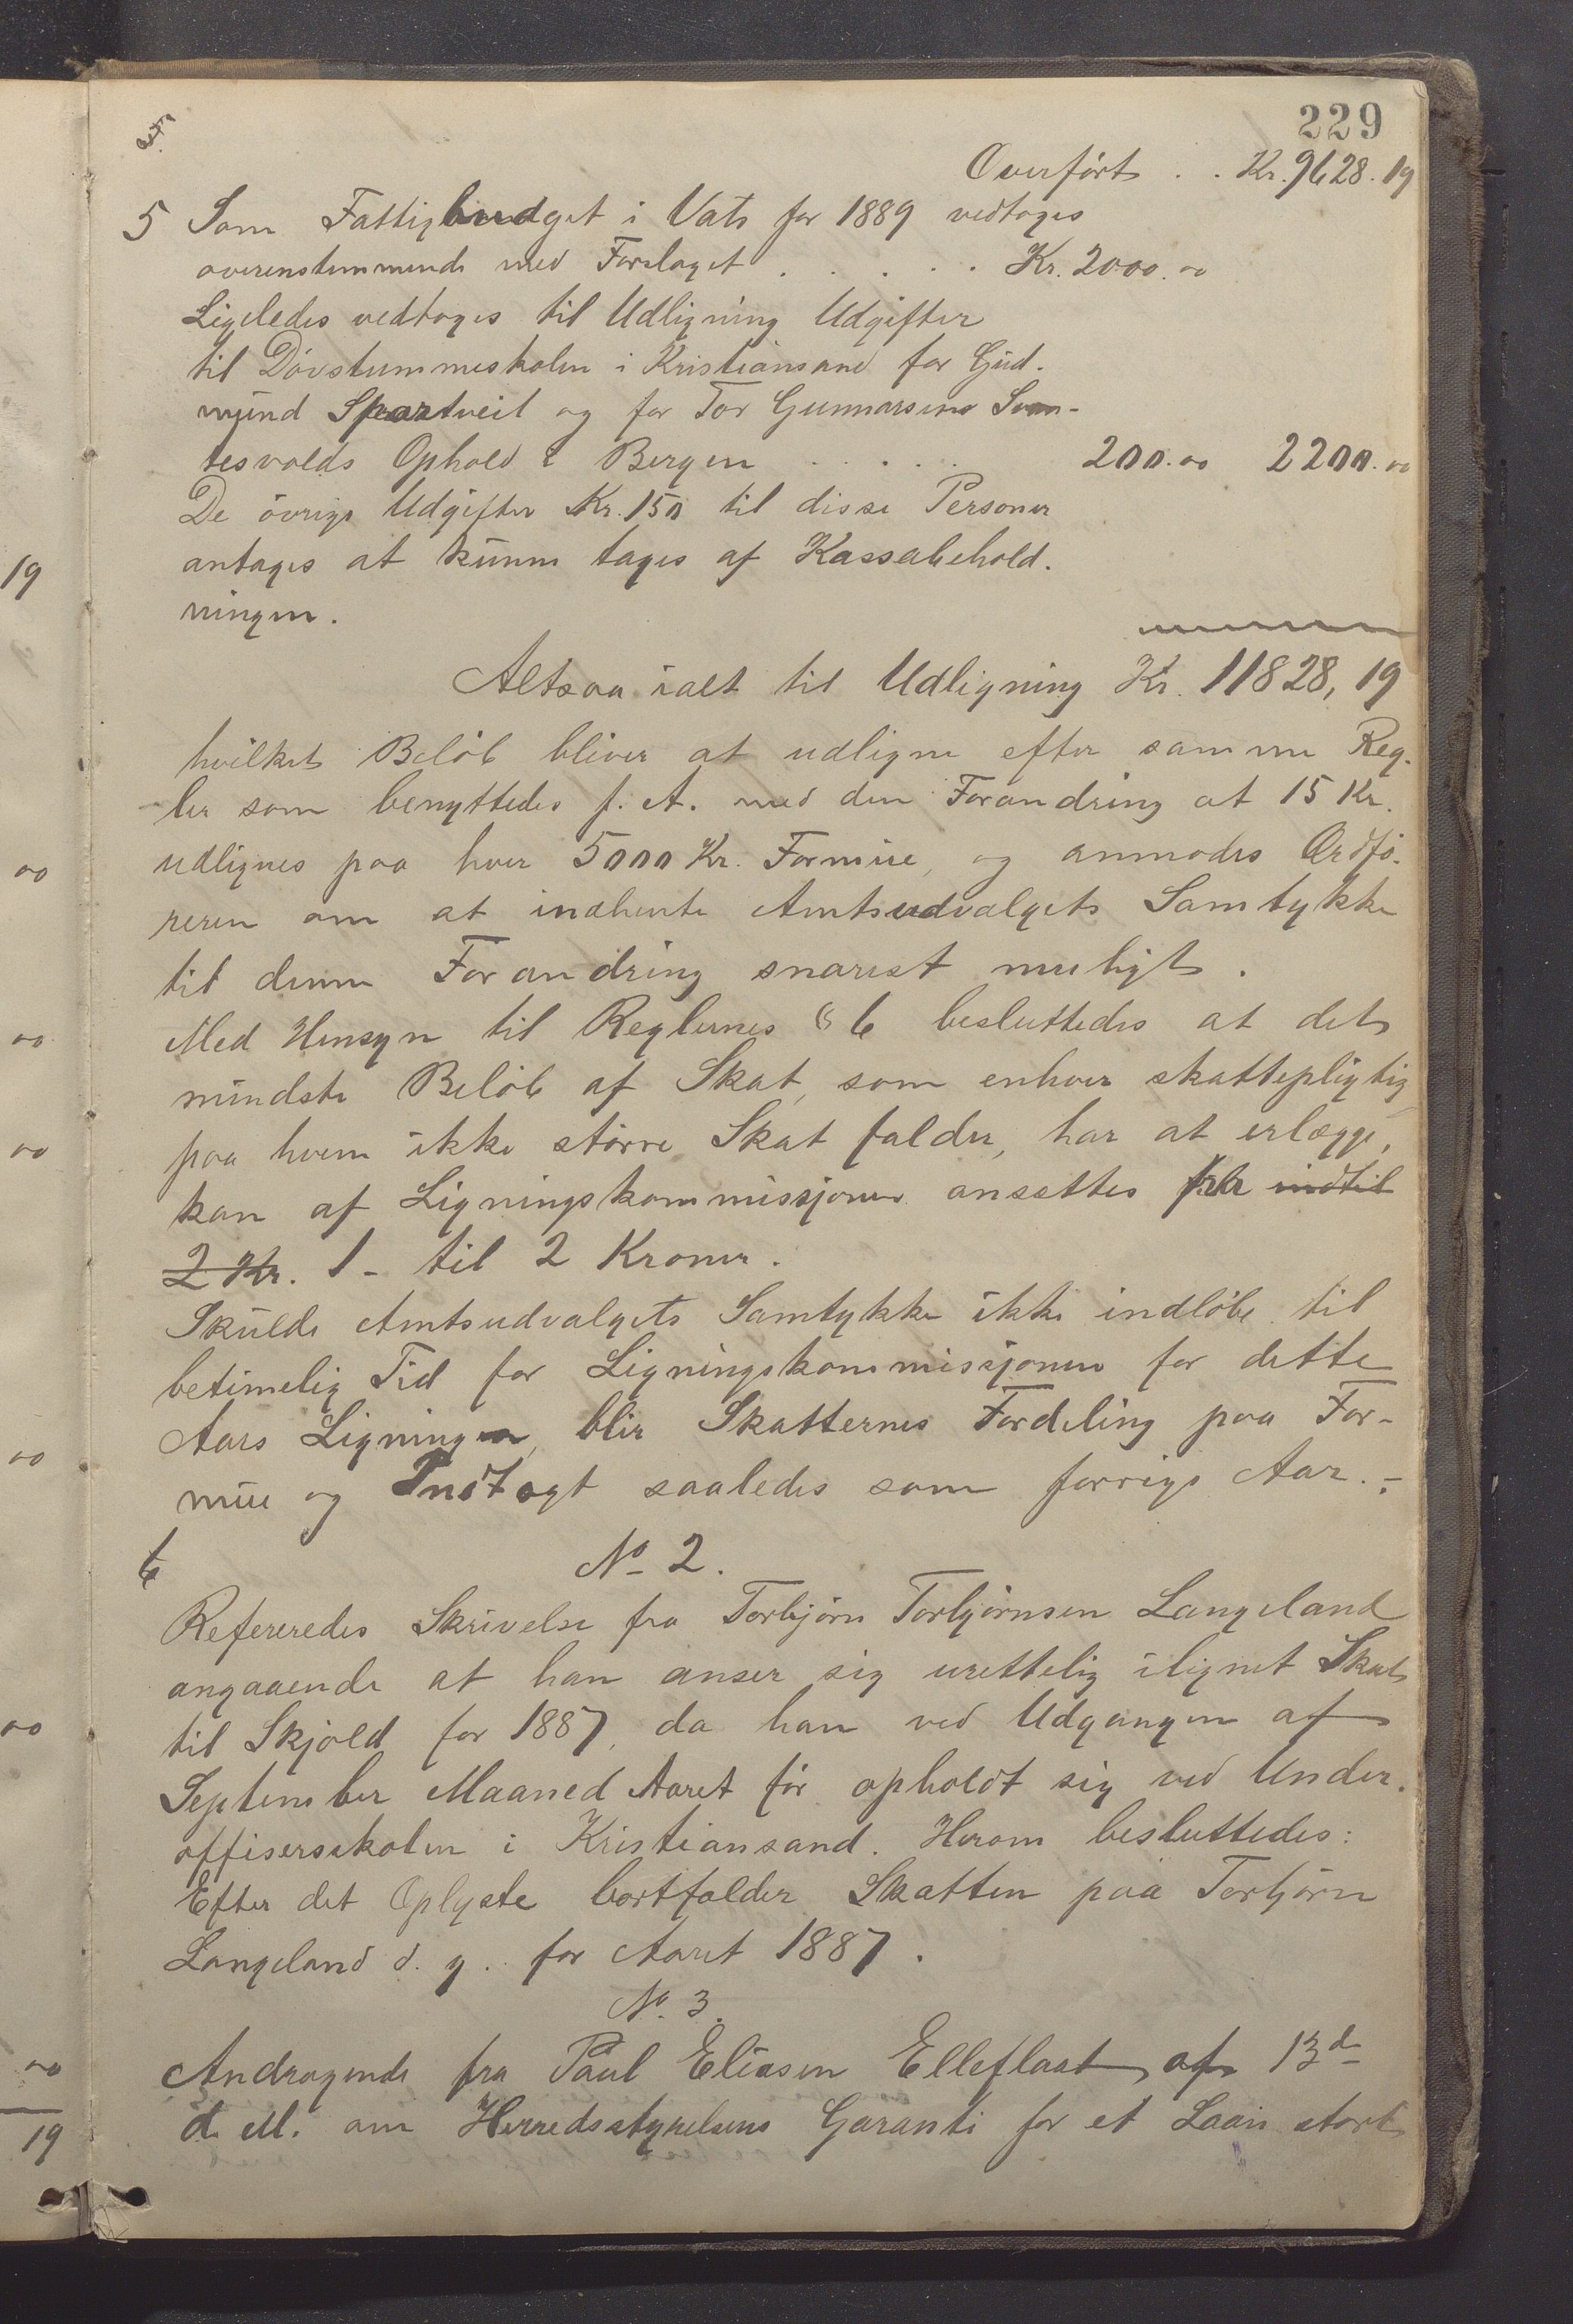 229
Overført . . Kr. 9628.19
5 Som Fattigbudget i Vats for 1889 vedtoges
overenstemmende med Forslaget . . . . . Kr. 2000.00
Ligeledes vedtoges til Udligning Udgifter
til Døvstummeskolen i Kristiansand for Gud-
mund Sportveit og for Tor Gunnarsens
tesvolds Ophold i Bergen . . . . . 200.00 2200.00
De øvrige Udgifter Kr. 150 til disse Personer
antages at kunne tages af Kassabehold-
ningen.
Altsaa ialt til Udligning Kr. 11828,19
hvilket Beløb bliver at udligne efter samme Reg-
ler som benyttedes f. A. med den Forandring at 15 Kr.
udlignes paa hver 5000 Kr. Formue, og anmodes Ordfø-
reren om at indhente Amtsudvalgets Samtykke
til denne Forandring snarest muligt.
Med Hensyn til Reglernes § 6 besluttedes at det
mindste Beløb af Skat, som enhver skattepligtig
paa hvem ikke større Skat falder, har at erlægge,
kan af Ligningskommissjonen ansættes fra indtil
2 Kr. 1 - til 2 Kroner.
Skulde Amtsudvalgets Samtykke ikke indløbe til
betimelig Tid for Ligningskommissjonen for dette
Aars Ligningen, blir Skatternes Fordeling paa For-
mue og Indtægt saaledes som forrige Aar. -
6 No 2.
Refereredes Skrivelse fra Torbjørn Torbjørnsen Langeland
angaaende at han anser sig urettelig ilignet Skat
til Skjold for 1887, da han ved Udgangen af
September Maaned Aaret før opholdt sig ved Under-
offisersskolen i Kristiansand. Herom besluttedes:
Efter det Oplyste bortfalder Skatten paa Torbjørn
Langeland d. y. for Aaret 1887.
No. 3.
Andragende fra Paul Eliasen Elleflaat af 13de
d. M. om Herredsstyrelsens Garanti for et Laan stort
19
00
00
00
00
00
00
19